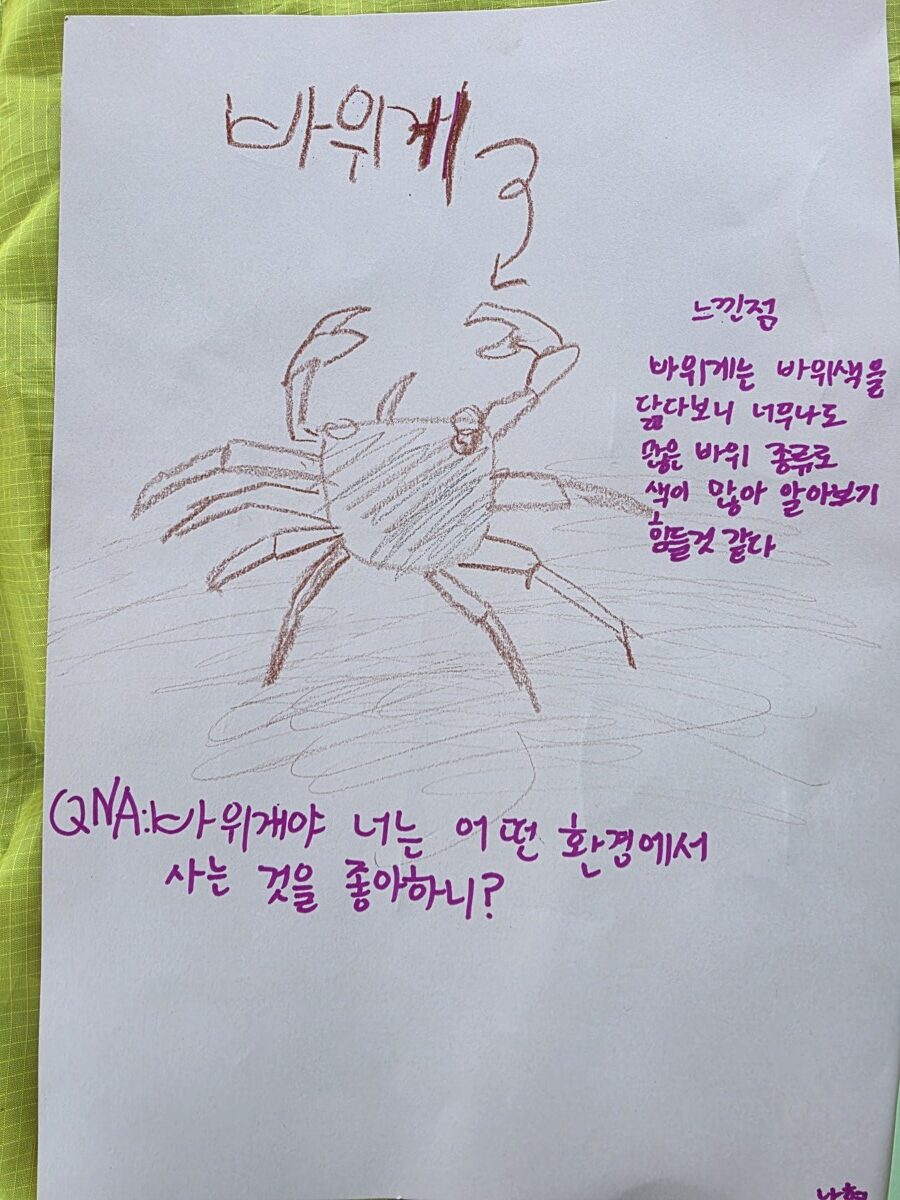 바위게
느낀점
바위게는 바위색을
닮다보니 너무나도
많은 바위 종류로
색이 많아 알아보기
힘들것 같다
QNA:바위개야 너는 어떤 환경에서
사는 것을 좋아하니?